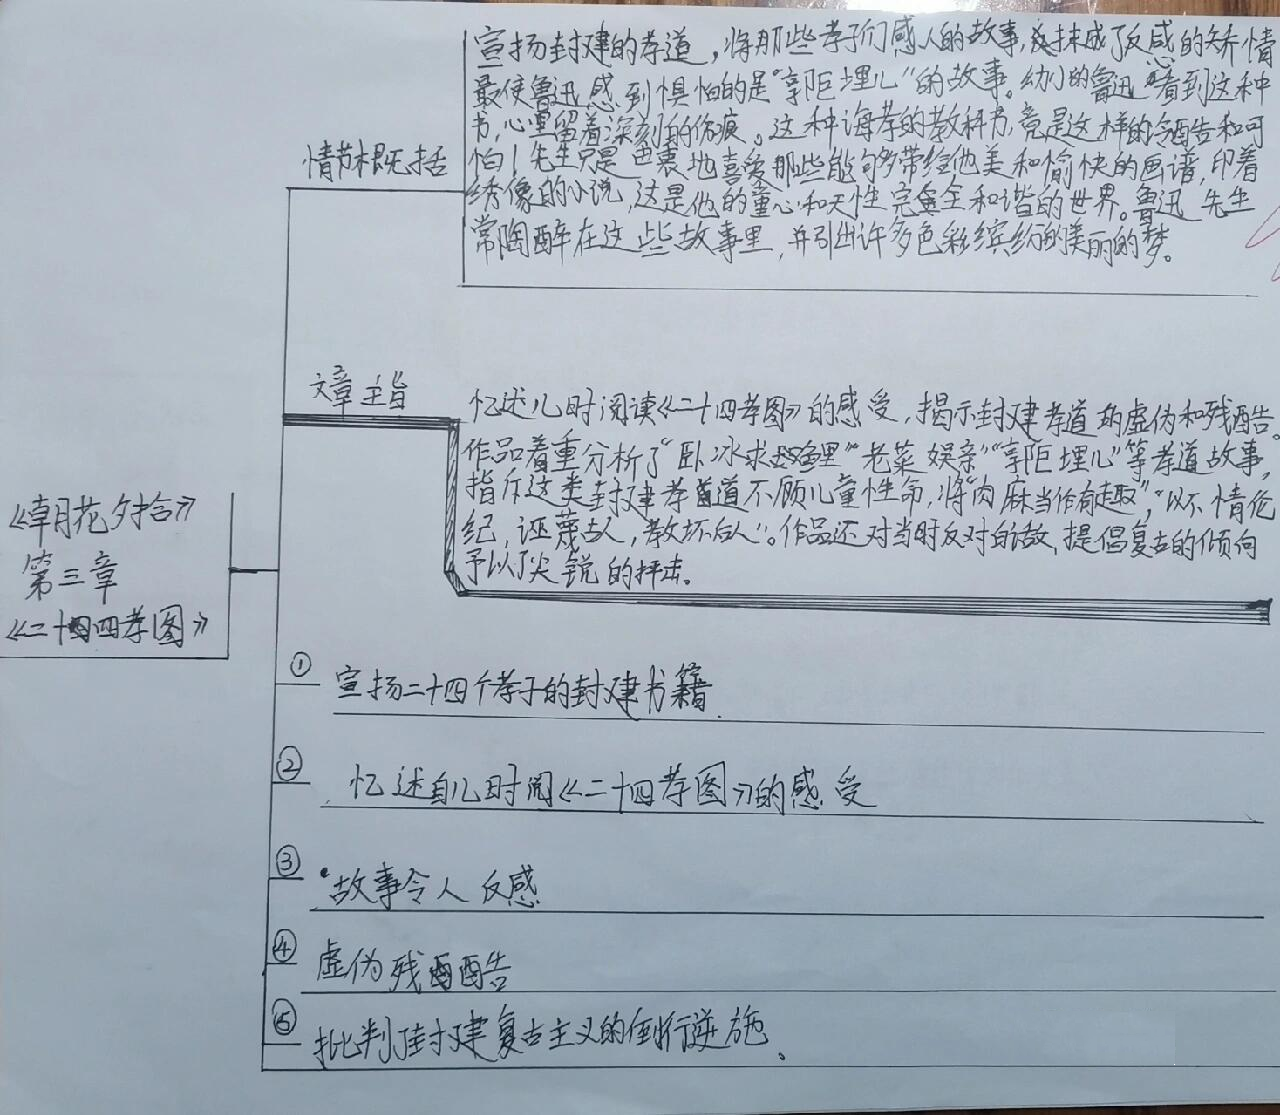 宣扬封建的孝道，将那些孝子们感人的故事，抹成了反感的矫情
最使鲁迅感到惧怕的是“郭巨埋儿”的故事。幼小的鲁迅看到这种
书，心里留着深刻的伤痕。这种诲孝的教科书，竟是这样的冷酷和可
怕！先生只是由衷地喜爱那些能够多带给他美和愉快的画谱，印着
绣像的小说，这是他的童心和天性完全和谐的世界。鲁迅先生
常陶醉在这些故事里，并引出许多色彩缤纷的美丽的梦。
情节概括
文章主旨
忆述儿时阅读《二十四孝图》的感受，揭示封建孝道的虚伪和残酷。
作品着重分析了“卧冰求鲤”“老莱娱亲”“郭巨埋儿”等孝道故事，
指斥这类封建孝道不顾儿童性命，将“肉麻当作有趣”，“以不情伦
纪，诬蔑古人，教坏后人”。作品还对当时反对白话，提倡复古的倾向
予以了尖锐的抨击。
《朝花夕拾》
第三章
《二十四孝图》
① 宣扬二十四个孝子的封建书籍
② 忆述自儿时阅《二十四孝图》的感受
③ 故事令人反感
④ 虚伪残酷
⑤ 批判封建复古主义的倒行逆施。